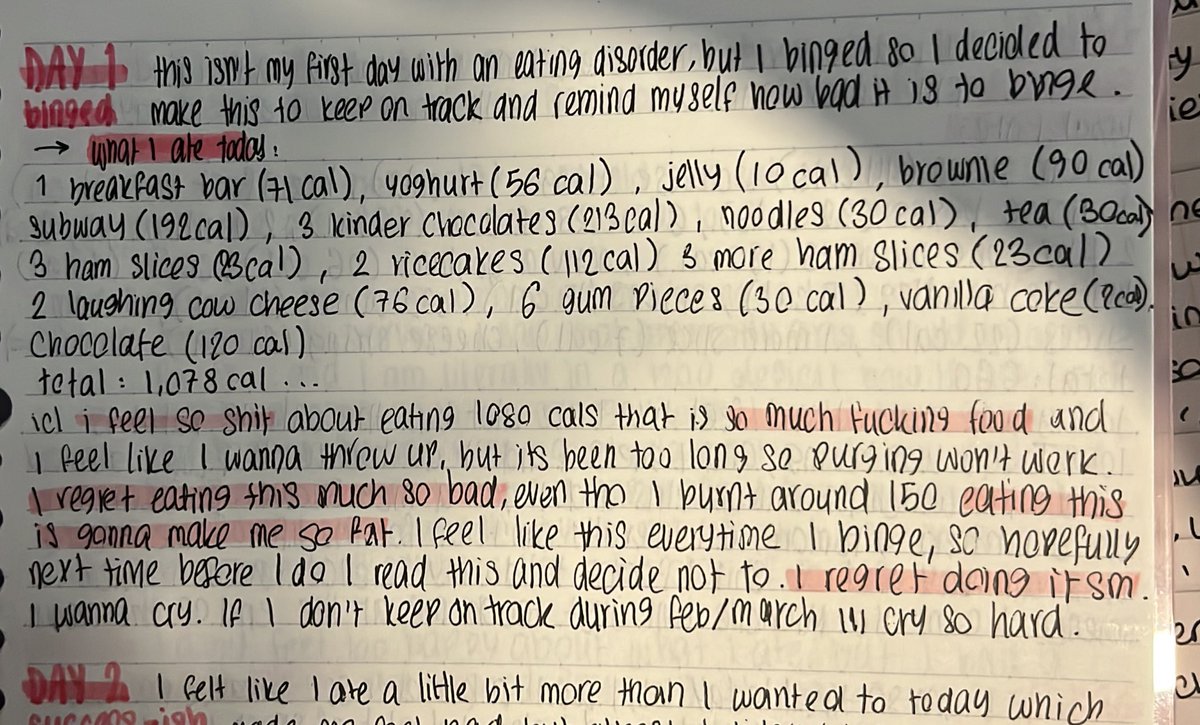 DAY 1 this isn't my first day with an eating disorder, but I binged so I decided to
binged make this to keep on track and remind myself how bad it is to binge.
→ what I ate today:
1 breakfast bar (71 cal), yoghurt (56 cal), jelly (10 cal), brownie (90 cal)
subway (192cal), 3 kinder chocolates (213cal), noodles (30 cal), tea (30cal)
3 ham slices (23cal), 2 ricecakes (112cal) 3 more ham slices (23cal)
2 laughing cow cheese (76 cal), 6 gum pieces (30 cal), vanilla coke (2cal).
chocolate (120 cal)
total: 1,078 cal ...
icl i feel so shit about eating 1080 cals that is so much fucking food and
I feel like I wanna throw up, but its been too long so purging won't work.
I regret eating this much so bad, even tho I burnt around 150 eating this
is gonna make me so fat. I feel like this everytime I binge, so hopefully
next time before I do I read this and decide not to. I regret doing it sm.
I wanna cry. If I don't keep on track during feb/march ill cry so hard.
DAY 2 I felt like I ate a little bit more than I wanted to today which